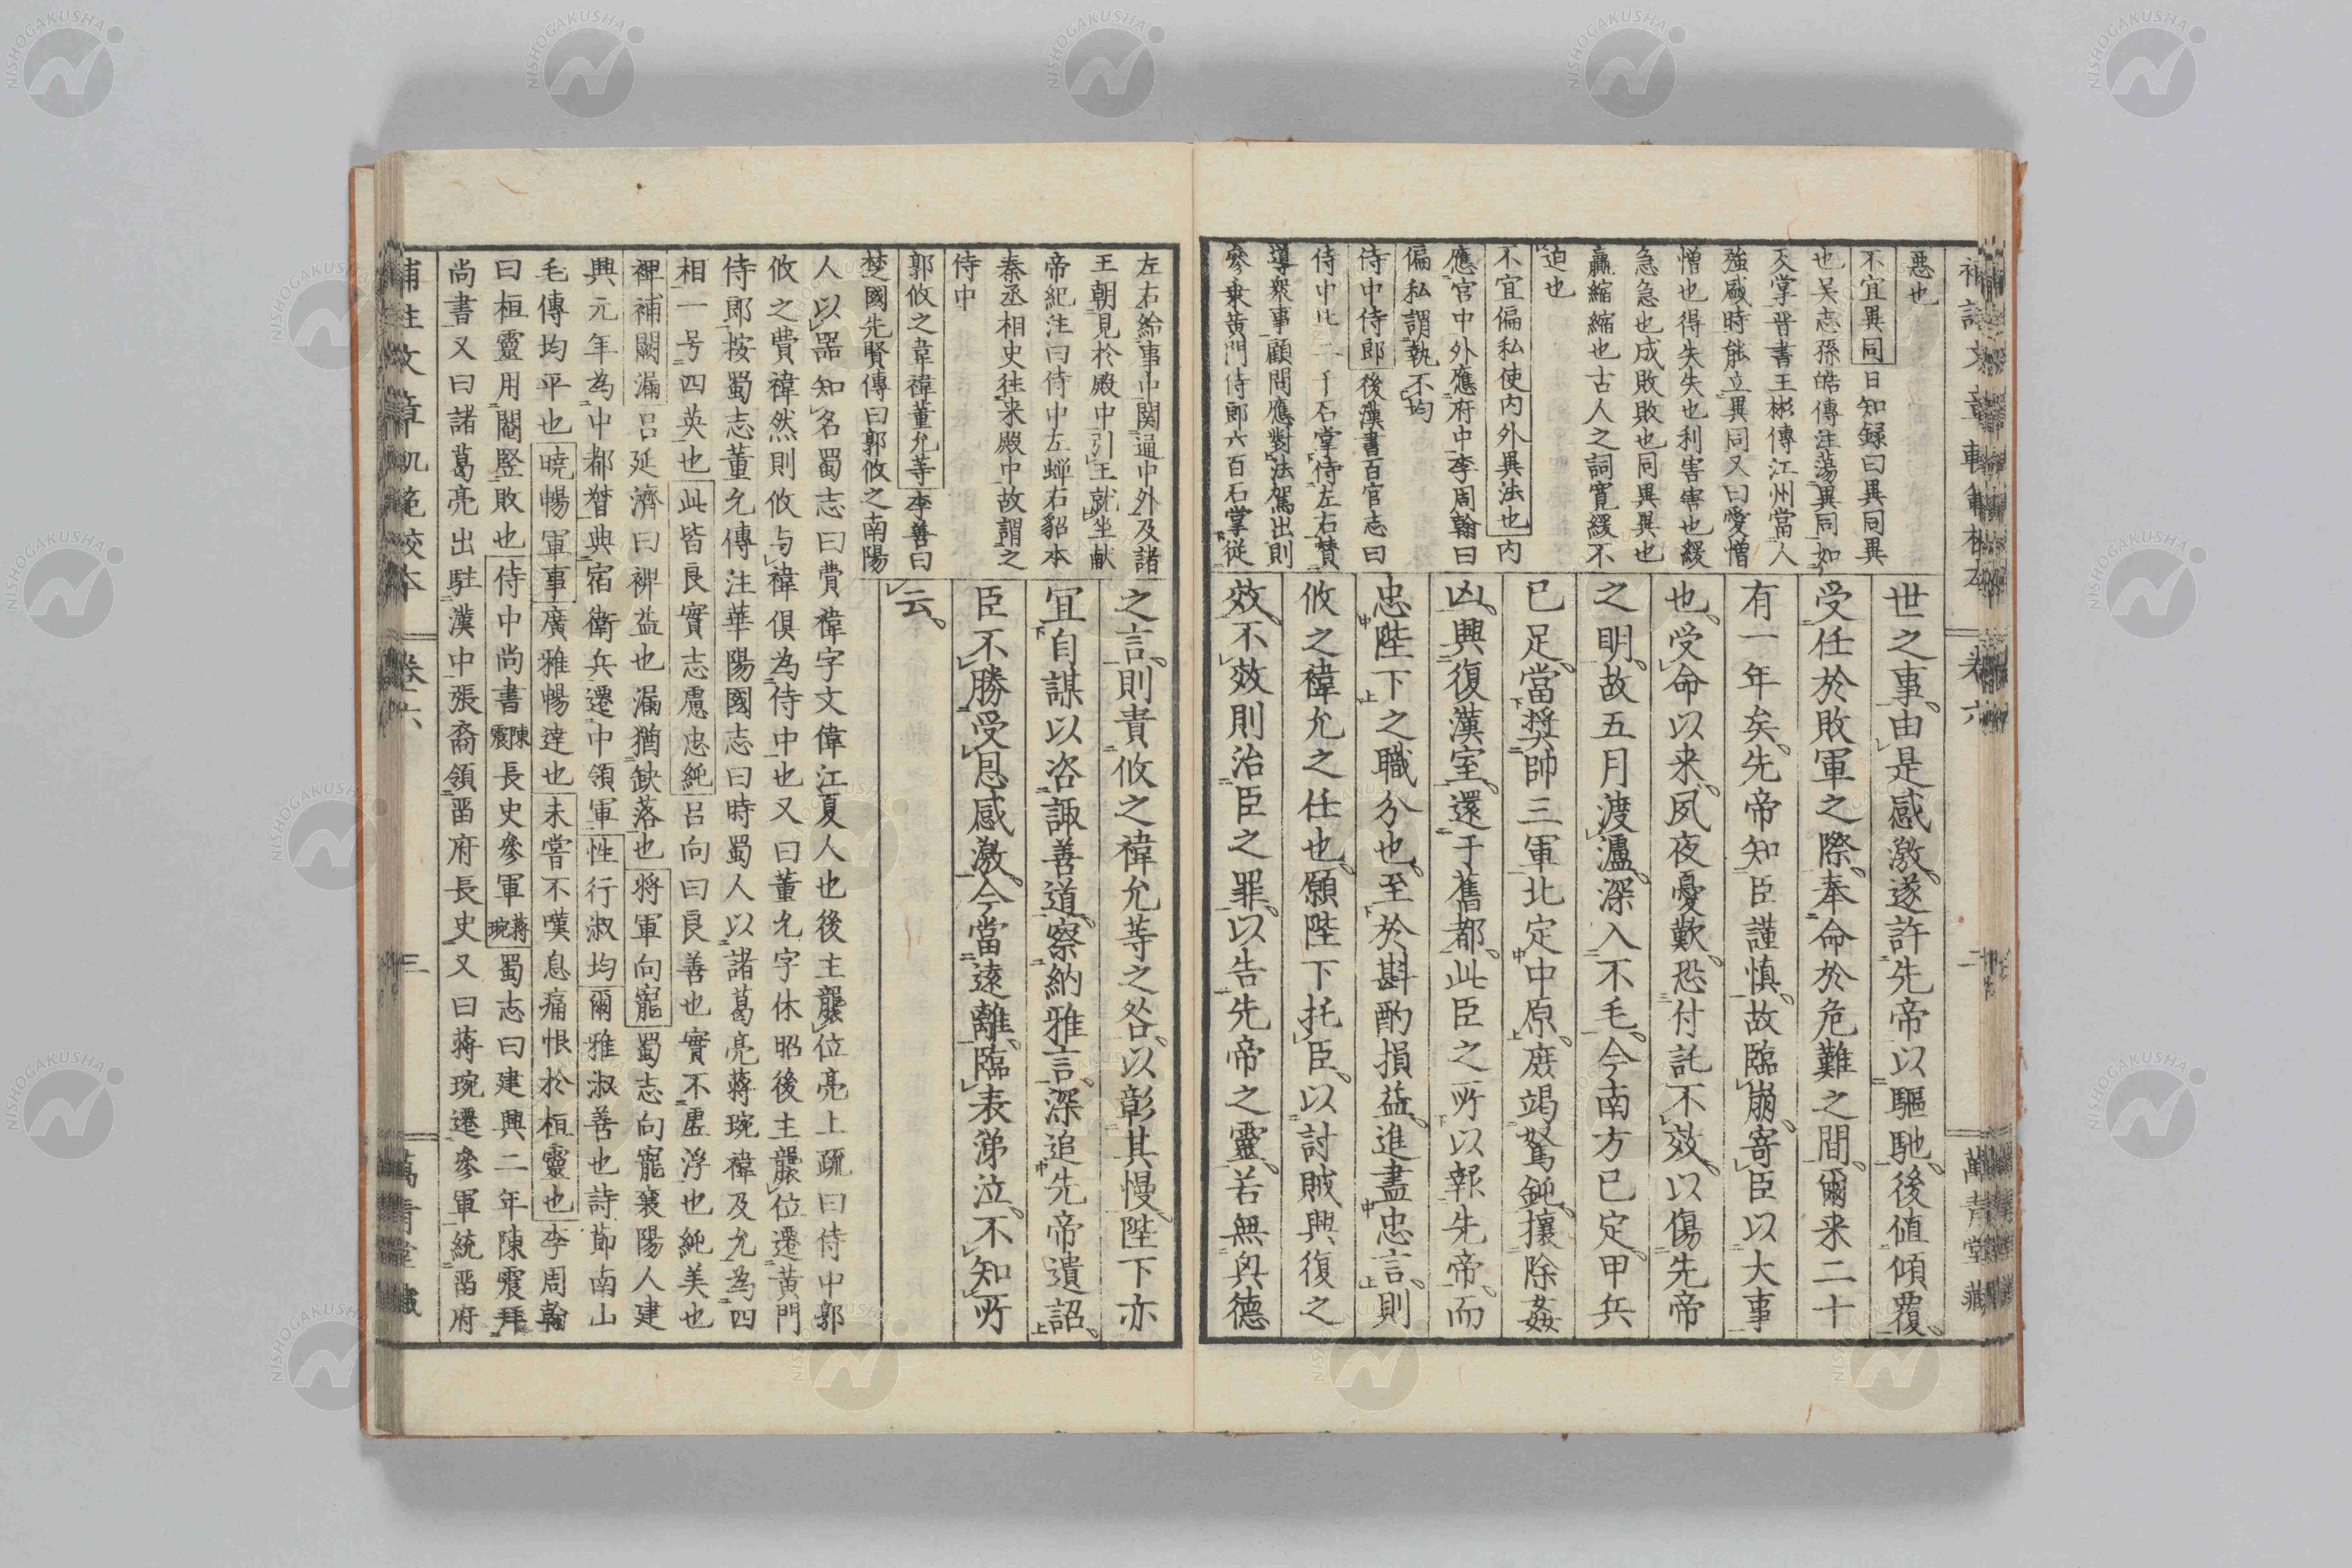 補註文章軌範校本
卷六
二
萬青堂藏
惡也
不宜異同 日知録曰異同異
也吴志孫皓傳注蕩異同如
反掌晋書王彬傳江州當人
強盛時能立異同又曰愛憎
憎也得失失也利害害也緩
急急也成敗敗也同異異也
贏縮縮也古人之詞寛緩不
迫也
不宜偏私使内外異法也 内
應官中外應府中李周翰曰
偏私謂執不均
侍中侍郎 後漢書百官志曰
侍中比二千石掌侍左右賛
導衆事顧問應對法駕出則
參乗黄門侍郎六百石掌從
世之事由是感激遂許先帝以驅馳後値傾覆
受任於敗軍之際奉命於危難之間爾来二十
有一年矣先帝知臣謹慎故臨崩寄臣以大事
也受命以来夙夜憂歎恐付託不效以傷先帝
之明故五月渡瀘深入不毛今南方已定甲兵
已足當奨帥三軍北定中原庶竭駑鈍攘除姦
凶興復漢室還于舊都此臣之所以報先帝而
忠陛下之職分也至於斟酌損益進盡忠言則
攸之褘允之任也願陛下托臣以討賊興復之
效不效則治臣之罪以告先帝之靈若無興德
左右給事中関通中外及諸
王朝見於殿中引王就坐献
帝紀注曰侍中左蝉右貂本
秦丞相史往来殿中故謂之
侍中
郭攸之韋褘董允等 李善曰
楚國先賢傳曰郭攸之南陽
之言則責攸之褘允等之咎以彰其慢陛下亦
宜自謀以咨諏善道察納雅言深追先帝遺詔
臣不勝受恩感激今當遠離臨表涕泣不知所
云
人以器知名蜀志曰費褘字文偉江夏人也後主襲位亮上疏曰侍中郭
攸之費褘然則攸与褘俱為侍中也又曰董允字休昭後主襲位遷黄門
侍郎按蜀志董允傳注華陽國志曰時蜀人以諸葛亮蒋琬褘及允為四
相一号四英也 此皆良實志慮忠純 呂向曰良善也實不虚浮也純美也
裨補闕漏 呂延濟曰裨益也漏猶缺落也 将軍向寵 蜀志向寵襄陽人建
興元年為中都督典宿衛兵遷中領軍 性行淑均 爾雅淑善也詩節南山
毛傳均平也 暁暢軍事 廣雅暢達也 未嘗不嘆息痛恨於桓靈也 李周翰
曰桓靈用閹竪敗也 侍中尚書陳震長史參軍蒋琬 蜀志曰建興二年陳震拜
尚書又曰諸葛亮出駐漢中張裔領畱府長史又曰蒋琬遷參軍統畱府
補註文章軌範校本
卷六
三
萬青堂藏
NISHOGAKUSHA